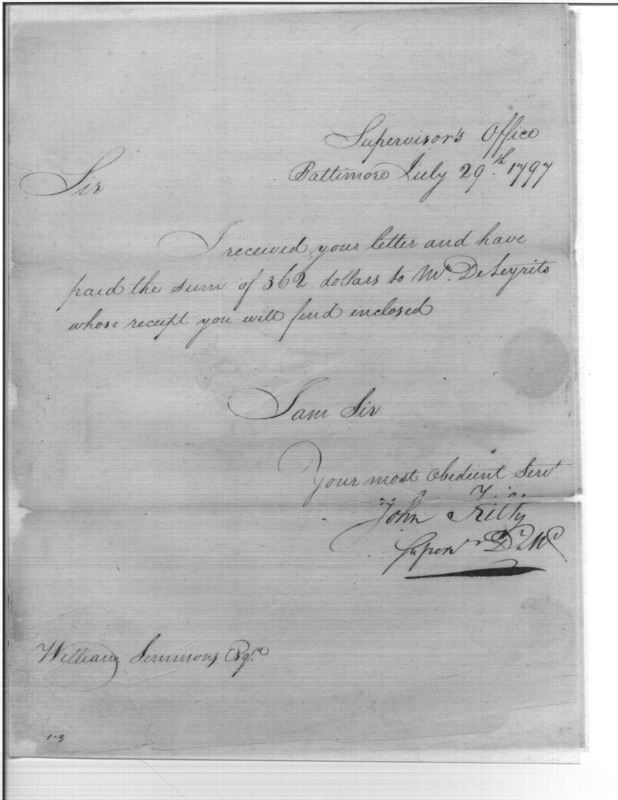 Supervisor's Office
Baltimore July 29th. 1797
Sir
I received your letter and have
paid the sum of 362 dollars to Mr. De Seyrits
whose receipt you will find enclosed
I am Sir
Your most Obedient Servt
John Kilty
William Simmons Esqr.
1-3